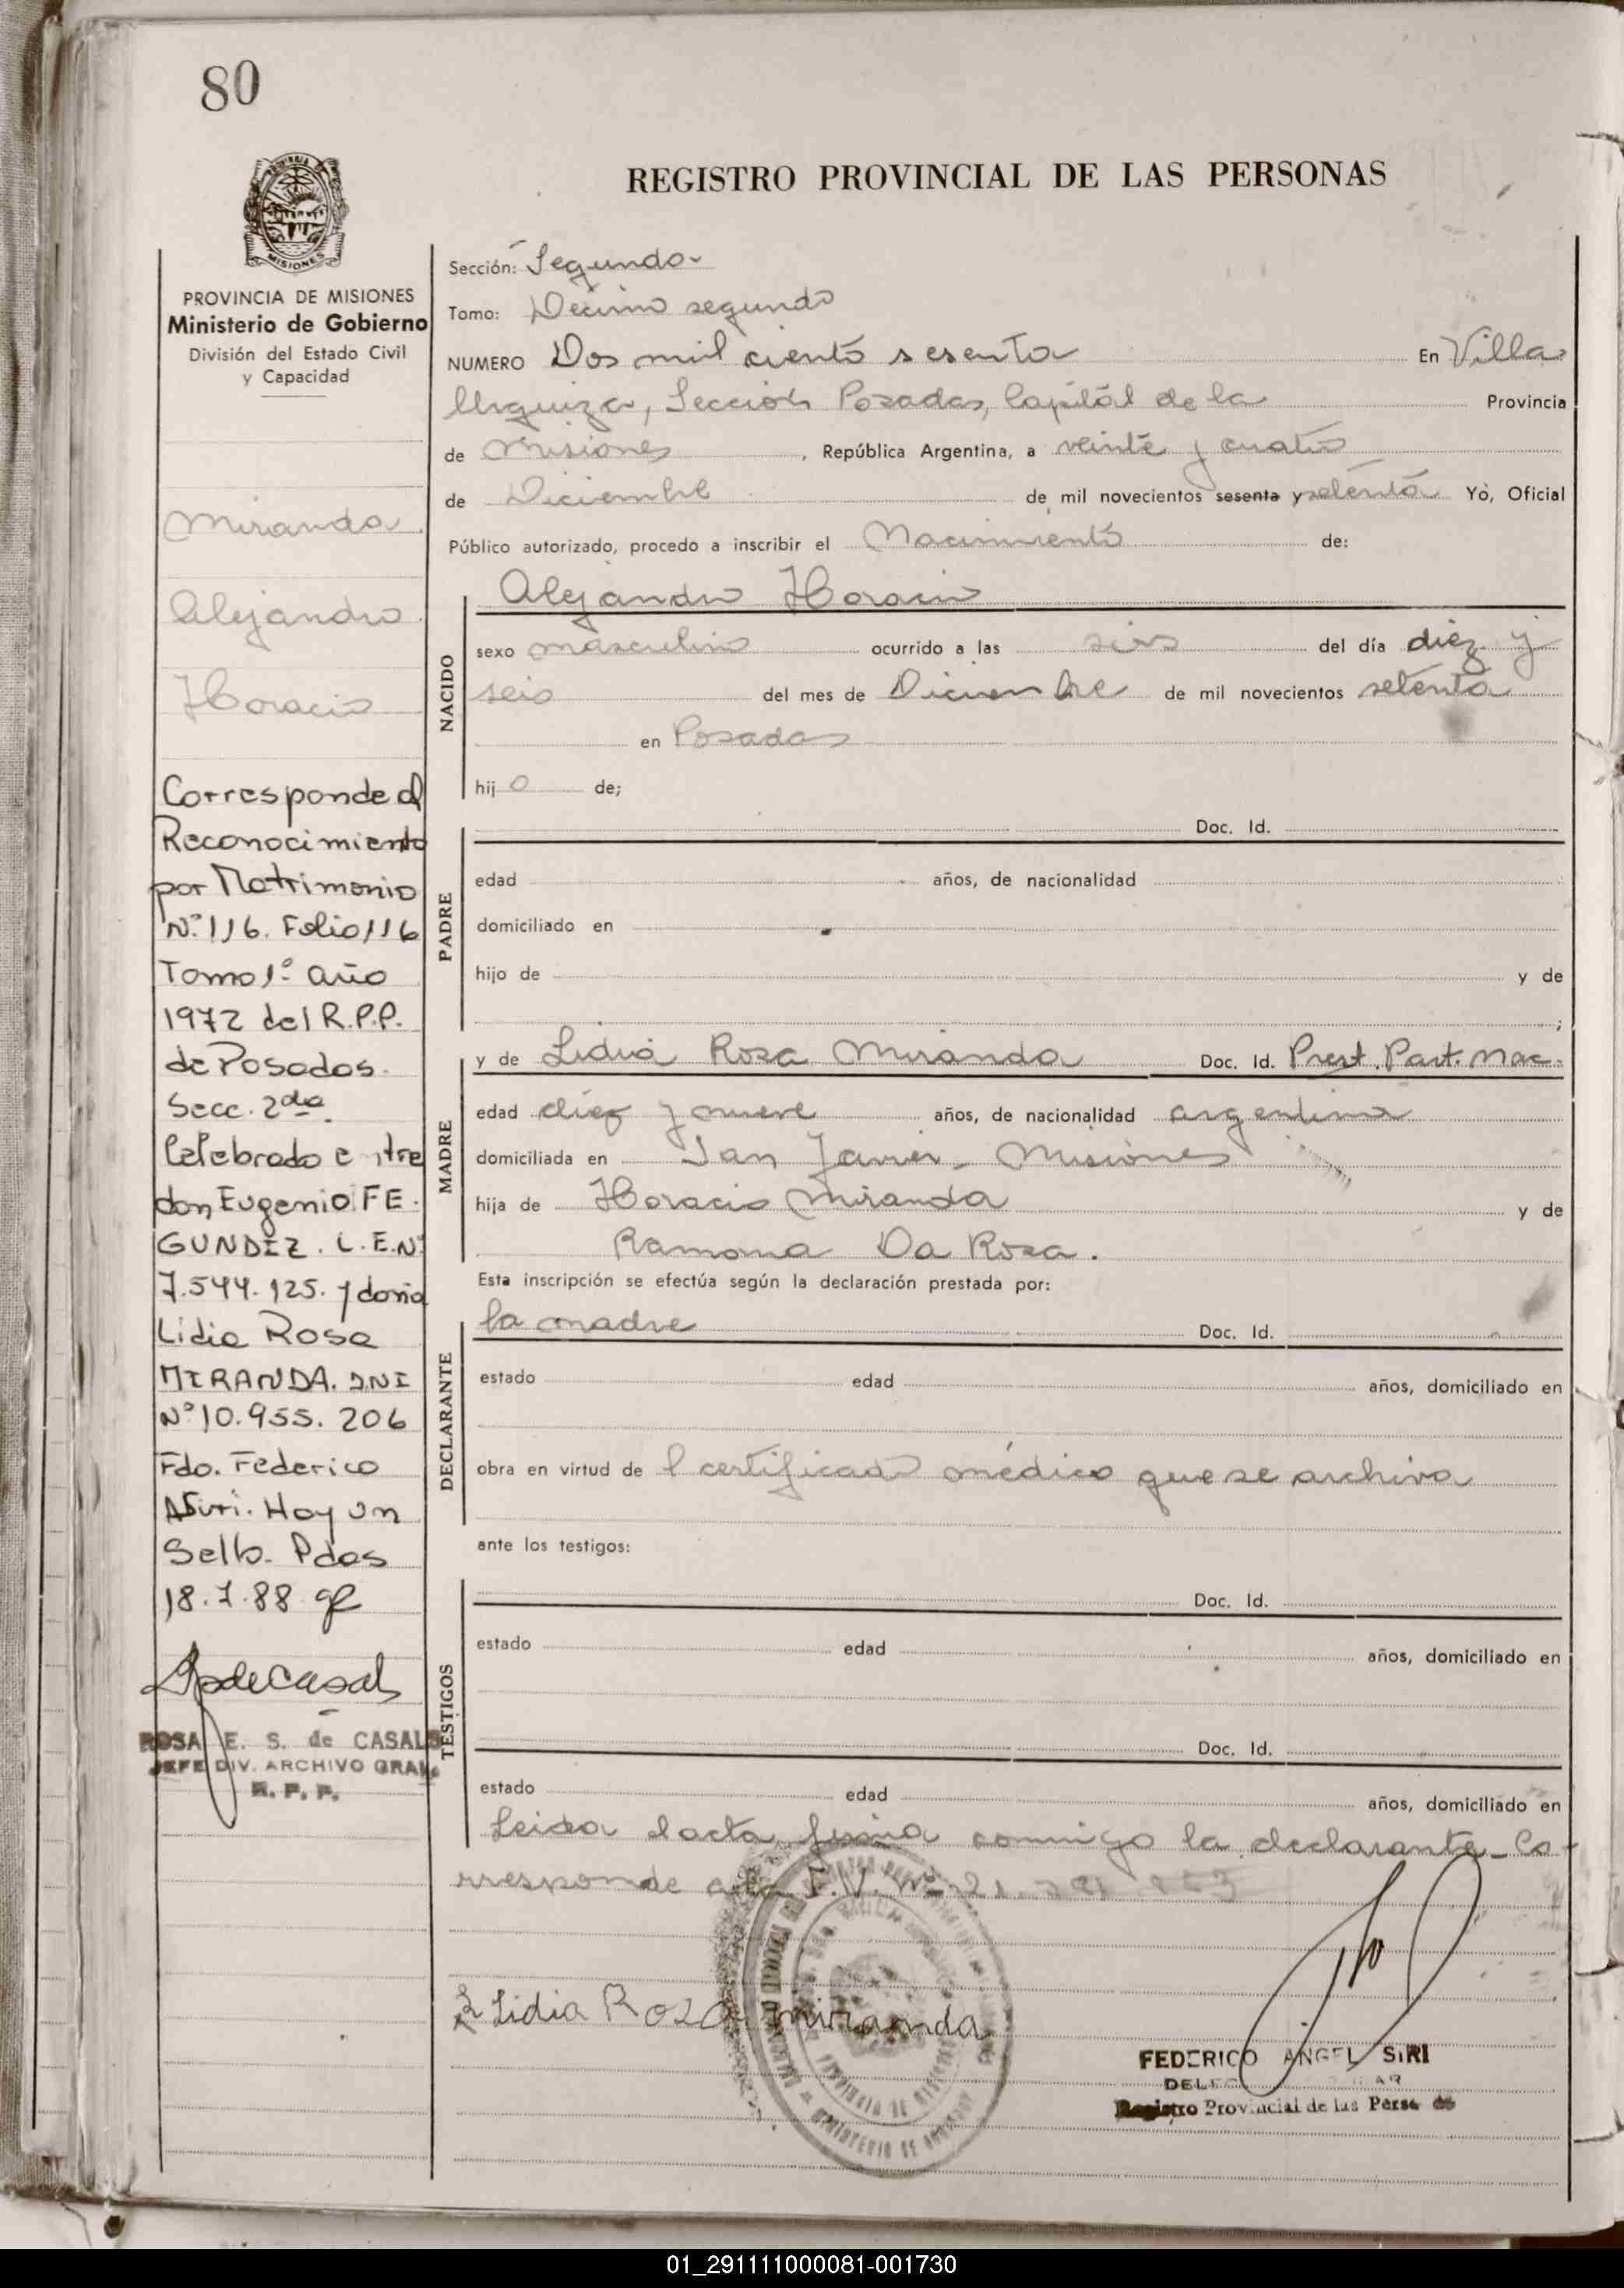 80
REGISTRO PROVINCIAL DE LAS PERSONAS
MISIONES
PROVINCIA DE MISIONES
Ministerio de Gobierno
División del Estado Civil
y Capacidad
Miranda
Alejandro
Horacio
Corresponde al
Reconocimiento
por Matrimonio
Nº 116. Folio 116
Tomo 1º año
1972 del R.P.P.
de Posadas.
Secc. 2da.
Celebrado entre
don Eugenio FE-
GUNDEZ. L.E.Nº
7.544.125. y doña
Lidia Rosa
MIRANDA. DNI
Nº 10.955.206
Fdo. Federico
A Siri. Hay un
Sello. Pdas
18.7.88
ROSA E. S. de CASALS
JEFE DIV. ARCHIVO GRAL.
R. P. P.
Sección: Segunda
Tomo: Décimo segundo
NUMERO Dos mil ciento sesenta En Villa
Urquiza, Sección Posadas, Capital de la Provincia
de Misiones, República Argentina, a veinte y cuatro
de Diciembre de mil novecientos sesenta y setenta Yo, Oficial
Público autorizado, procedo a inscribir el Nacimiento de:
Alejandro Horacio
NACIDO
sexo masculino ocurrido a las seis del día diez y
seis del mes de Diciembre de mil novecientos setenta
en Posadas
hijo de;
PADRE
Doc. Id.
edad años, de nacionalidad
domiciliado en
hijo de y de
;
MADRE
y de Lidia Rosa Miranda Doc. Id. Prest. Part. Nac.
edad diez y nueve años, de nacionalidad argentina
domiciliada en San Javier - Misiones
hija de Horacio Miranda y de
Ramona Da Rosa.
Esta inscripción se efectúa según la declaración prestada por:
DECLARANTE
la madre Doc. Id.
estado edad años, domiciliado en
obra en virtud de l certificado médico que se archiva
ante los testigos:
TESTIGOS
Doc. Id.
estado edad años, domiciliado en
Doc. Id.
estado edad años, domiciliado en
Leida el acta, firma conmigo la declarante - Co-
rresponde Nº 21.
Lidia Rosa miranda
FEDERICO ANGEL SIRI
Registro Provincial de las Personas
01_291111000081-001730